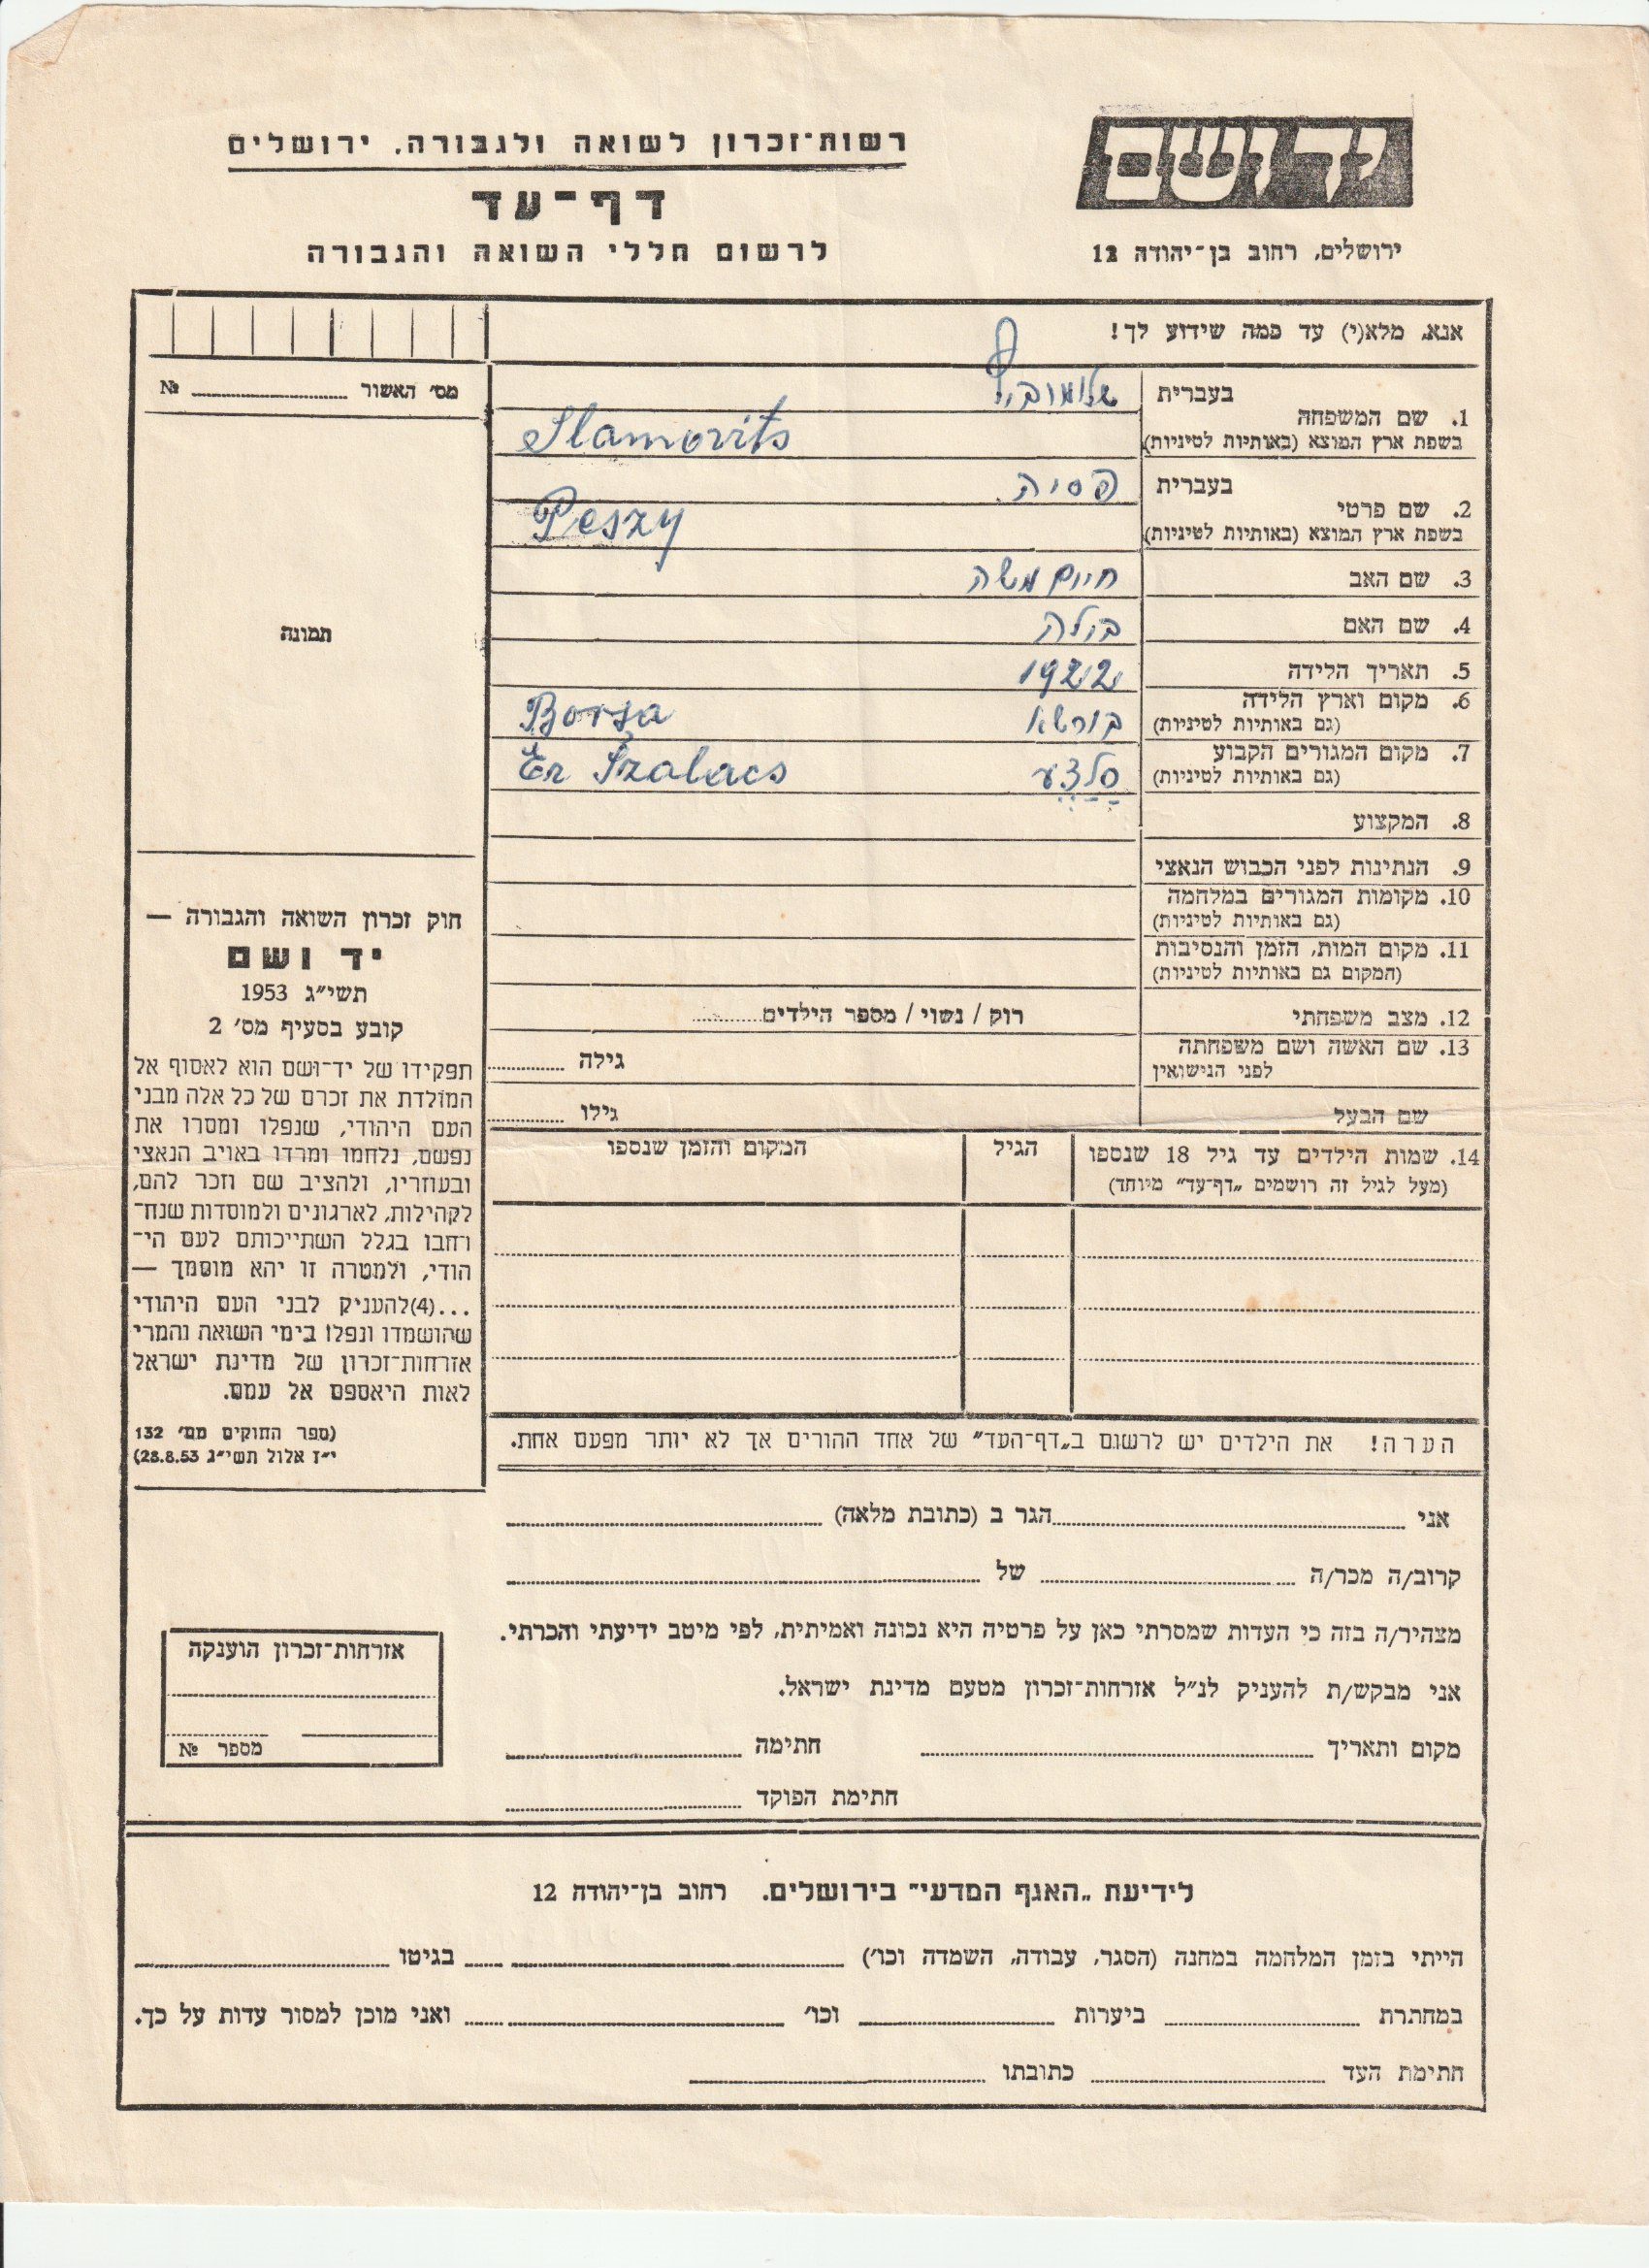 יד ושם
ירושלים, רחוב בן־יהודה 12
רשות־זכרון לשואה ולגבורה, ירושלים
דף־עד
לרשום חללי השואה והגבורה
אנא, מלא(י) עד כמה שידוע לך!
מס' האשור № ____
1. שם המשפחה
בעברית שלומוביץ
בשפת ארץ המוצא (באותיות לטיניות) Slamovits
2. שם פרטי
בעברית פסיה
בשפת ארץ המוצא (באותיות לטיניות) Peszy
3. שם האב חיים משה
4. שם האם בילה
5. תאריך הלידה 1922
6. מקום וארץ הלידה בורשא Borşa
(גם באותיות לטיניות)
7. מקום המגורים הקבוע סָלַצֶ'ע Er Szalacs
(גם באותיות לטיניות)
8. המקצוע
9. הנתינות לפני הכבוש הנאצי
10. מקומות המגורים במלחמה
(גם באותיות לטיניות)
11. מקום המות, הזמן והנסיבות
(המקום גם באותיות לטיניות)
12. מצב משפחתי רוק / נשוי / מספר הילדים..........
13. שם האשה ושם משפחתה
לפני הנישואין גילה ..........
שם הבעל גילו ..........
14. שמות הילדים עד גיל 18 שנספו הגיל המקום והזמן שנספו
(מעל לגיל זה רושמים „דף־עד" מיוחד)
הערה! את הילדים יש לרשום ב„דף־העד" של אחד ההורים אך לא יותר מפעם אחת.
תמונה
חוק זכרון השואה והגבורה —
יד ושם
תשי״ג 1953
קובע בסעיף מס' 2
תפקידו של יד־ושם הוא לאסוף אל
המולדת את זכרם של כל אלה מבני
העם היהודי, שנפלו ומסרו את
נפשם, נלחמו ומרדו באויב הנאצי
ובעוזריו, ולהציב שם וזכר להם,
לקהילות, לארגונים ולמוסדות שנח־
רחבו בגלל השתייכותם לעם הי־
הודי, ולמטרה זו יהא מוסמך —
...(4)להעניק לבני העם היהודי
שהושמדו ונפלו בימי השואה והמרי
אזרחות־זכרון של מדינת ישראל
לאות היאספם אל עמם.
(ספר החוקים מס' 132
י״ז אלול תשי״ג 28.8.53)
אני .......... הגר ב (כתובת מלאה) ..........
קרוב/ה מכר/ה .......... של ..........
מצהיר/ה בזה כי העדות שמסרתי כאן על פרטיה היא נכונה ואמיתית, לפי מיטב ידיעתי והכרתי.
אני מבקש/ת להעניק לנ״ל אזרחות־זכרון מטעם מדינת ישראל.
מקום ותאריך .......... חתימה ..........
חתימת הפוקד ..........
אזרחות־זכרון הוענקה
מספר №
לידיעת „האגף המדעי" בירושלים. רחוב בן־יהודה 12
הייתי בזמן המלחמה במחנה (הסגר, עבודה, השמדה וכו') .......... בגיטו ..........
במחתרת .......... ביערות .......... וכו' .......... ואני מוכן למסור עדות על כך.
חתימת העד .......... כתובתו ..........